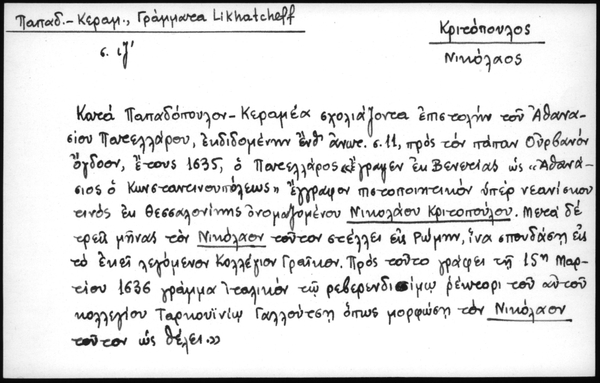 Παπαδ.-Κεραμ., Γράμματα Likhatcheff
σ. ιζ'
Κριτόπουλος
Νικόλαος
Κατά Παπαδόπουλον-Κεραμέα σχολιάζοντα ἐπιστολήν τοῦ Ἀθανα-
σίου Πατελλάρου, ἐκδιδομένην ἔνθ' ἀνωτ. σ. 11, πρός τόν πάπαν Οὐρβανόν
ὄγδοον, ἔτους 1635, ὁ Πατελλάρος «ἔγραψεν ἐκ Βενετίας ὡς «Ἀθανά-
σιος ὁ Κωνσταντινουπόλεως» ἔγγραφον πιστοποιητικόν ὑπέρ νεανίσκου
τινός ἐκ Θεσσαλονίκης ὀνομαζομένου Νικολάου Κριτοπούλου. Μετά δέ
τρεῖς μῆνας τόν Νικόλαον τοῦτον στέλλει εἰς Ρώμην, ἵνα σπουδάσῃ εἰς
τό ἐκεῖ λεγόμενον Κολλέγιον Γραῖκον. Πρός τοῦτο γράφει τῇ 15ῃ Μαρ-
τίου 1636 γράμμα ἰταλικόν τῷ ρεβερενδισίμῳ ρέκτορι τοῦ αὐτοῦ
κολλεγίου Ταρκουϊνίῳ Γαλλούτσῃ ὅπως μορφώσῃ τόν Νικόλαον
τοῦτον ὡς θέλει.»